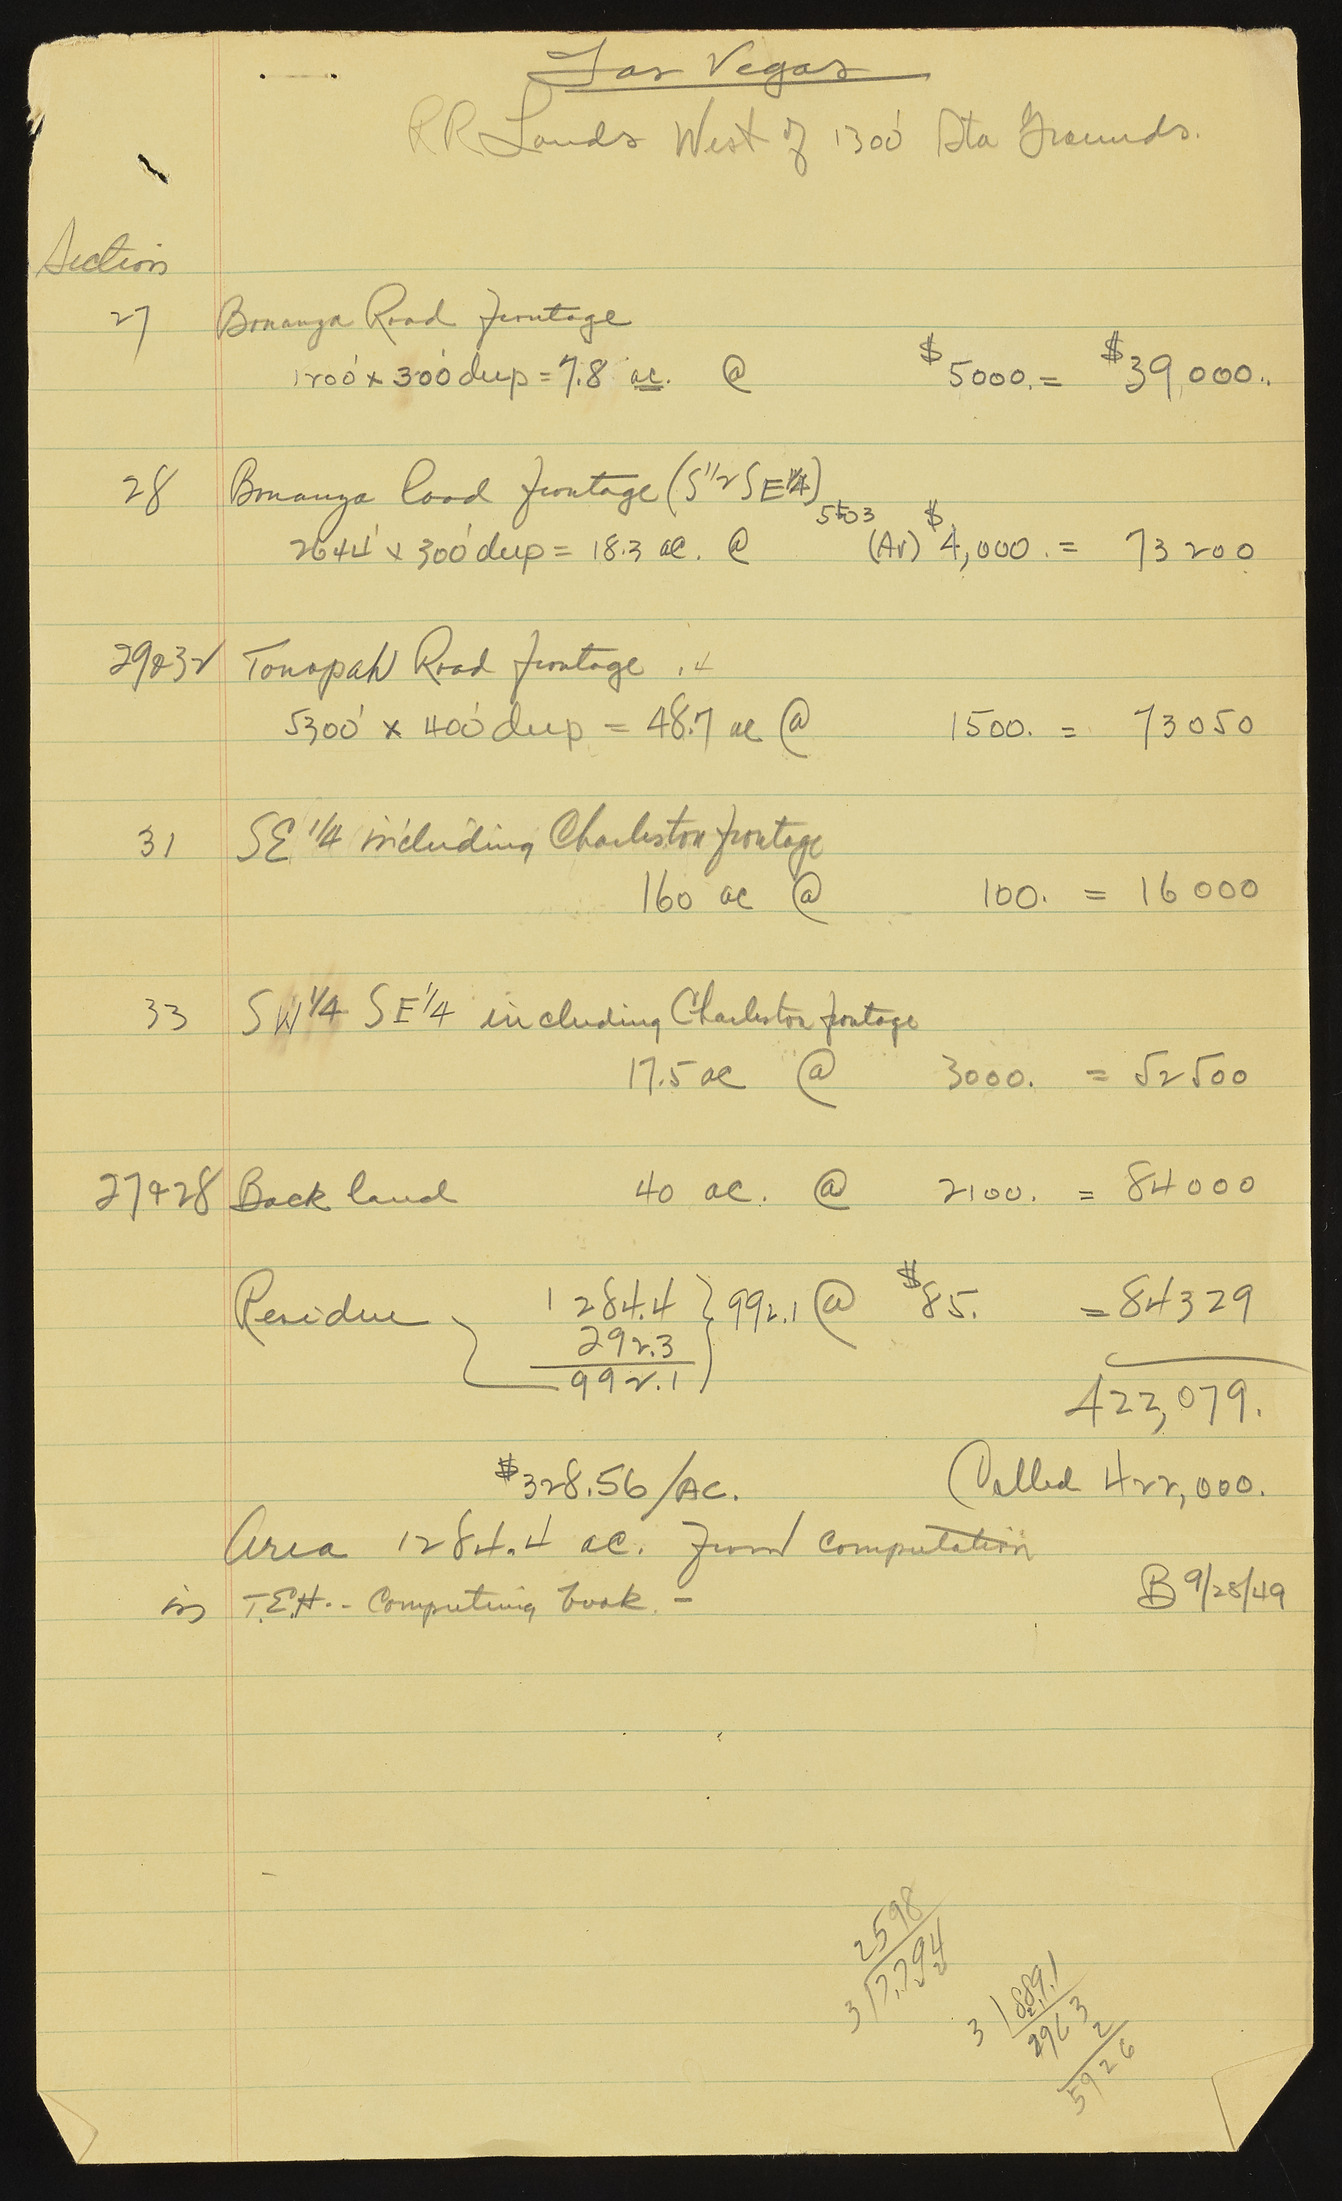 Las Vegas
RR Lands West of 1300' Sta Grounds.
Section
27 Bonanza Road frontage
1200' x 300' deep = 7.8 ac. @ $5000. = $39,000..
28 Bonanza Road frontage (S 1/2 SE 1/4)
2644' x 300' deep = 18.3 ac. @ (Av) $4,000. = 73200
29 & 32 Tonopah Road frontage
5300' x 400' deep = 48.7 ac @ 1500. = 73050
31 SE 1/4 including Charleston frontage
160 ac @ 100. = 16000
33 SW 1/4 SE 1/4 including Charleston frontage
17.5 ac @ 3000. = 52500
27 & 28 Back land 40 ac. @ 2100. = 84000
Residue 1284.4 } 992.1 @ $85. = 84329
292.3
992.1
422,079.
$328.56/AC. Called 422,000.
Area 1284.4 ac. from computation
in T.E.H. - Computing book - B 9/28/49
2598
3 7.794
3 889.1
2963
2
5926